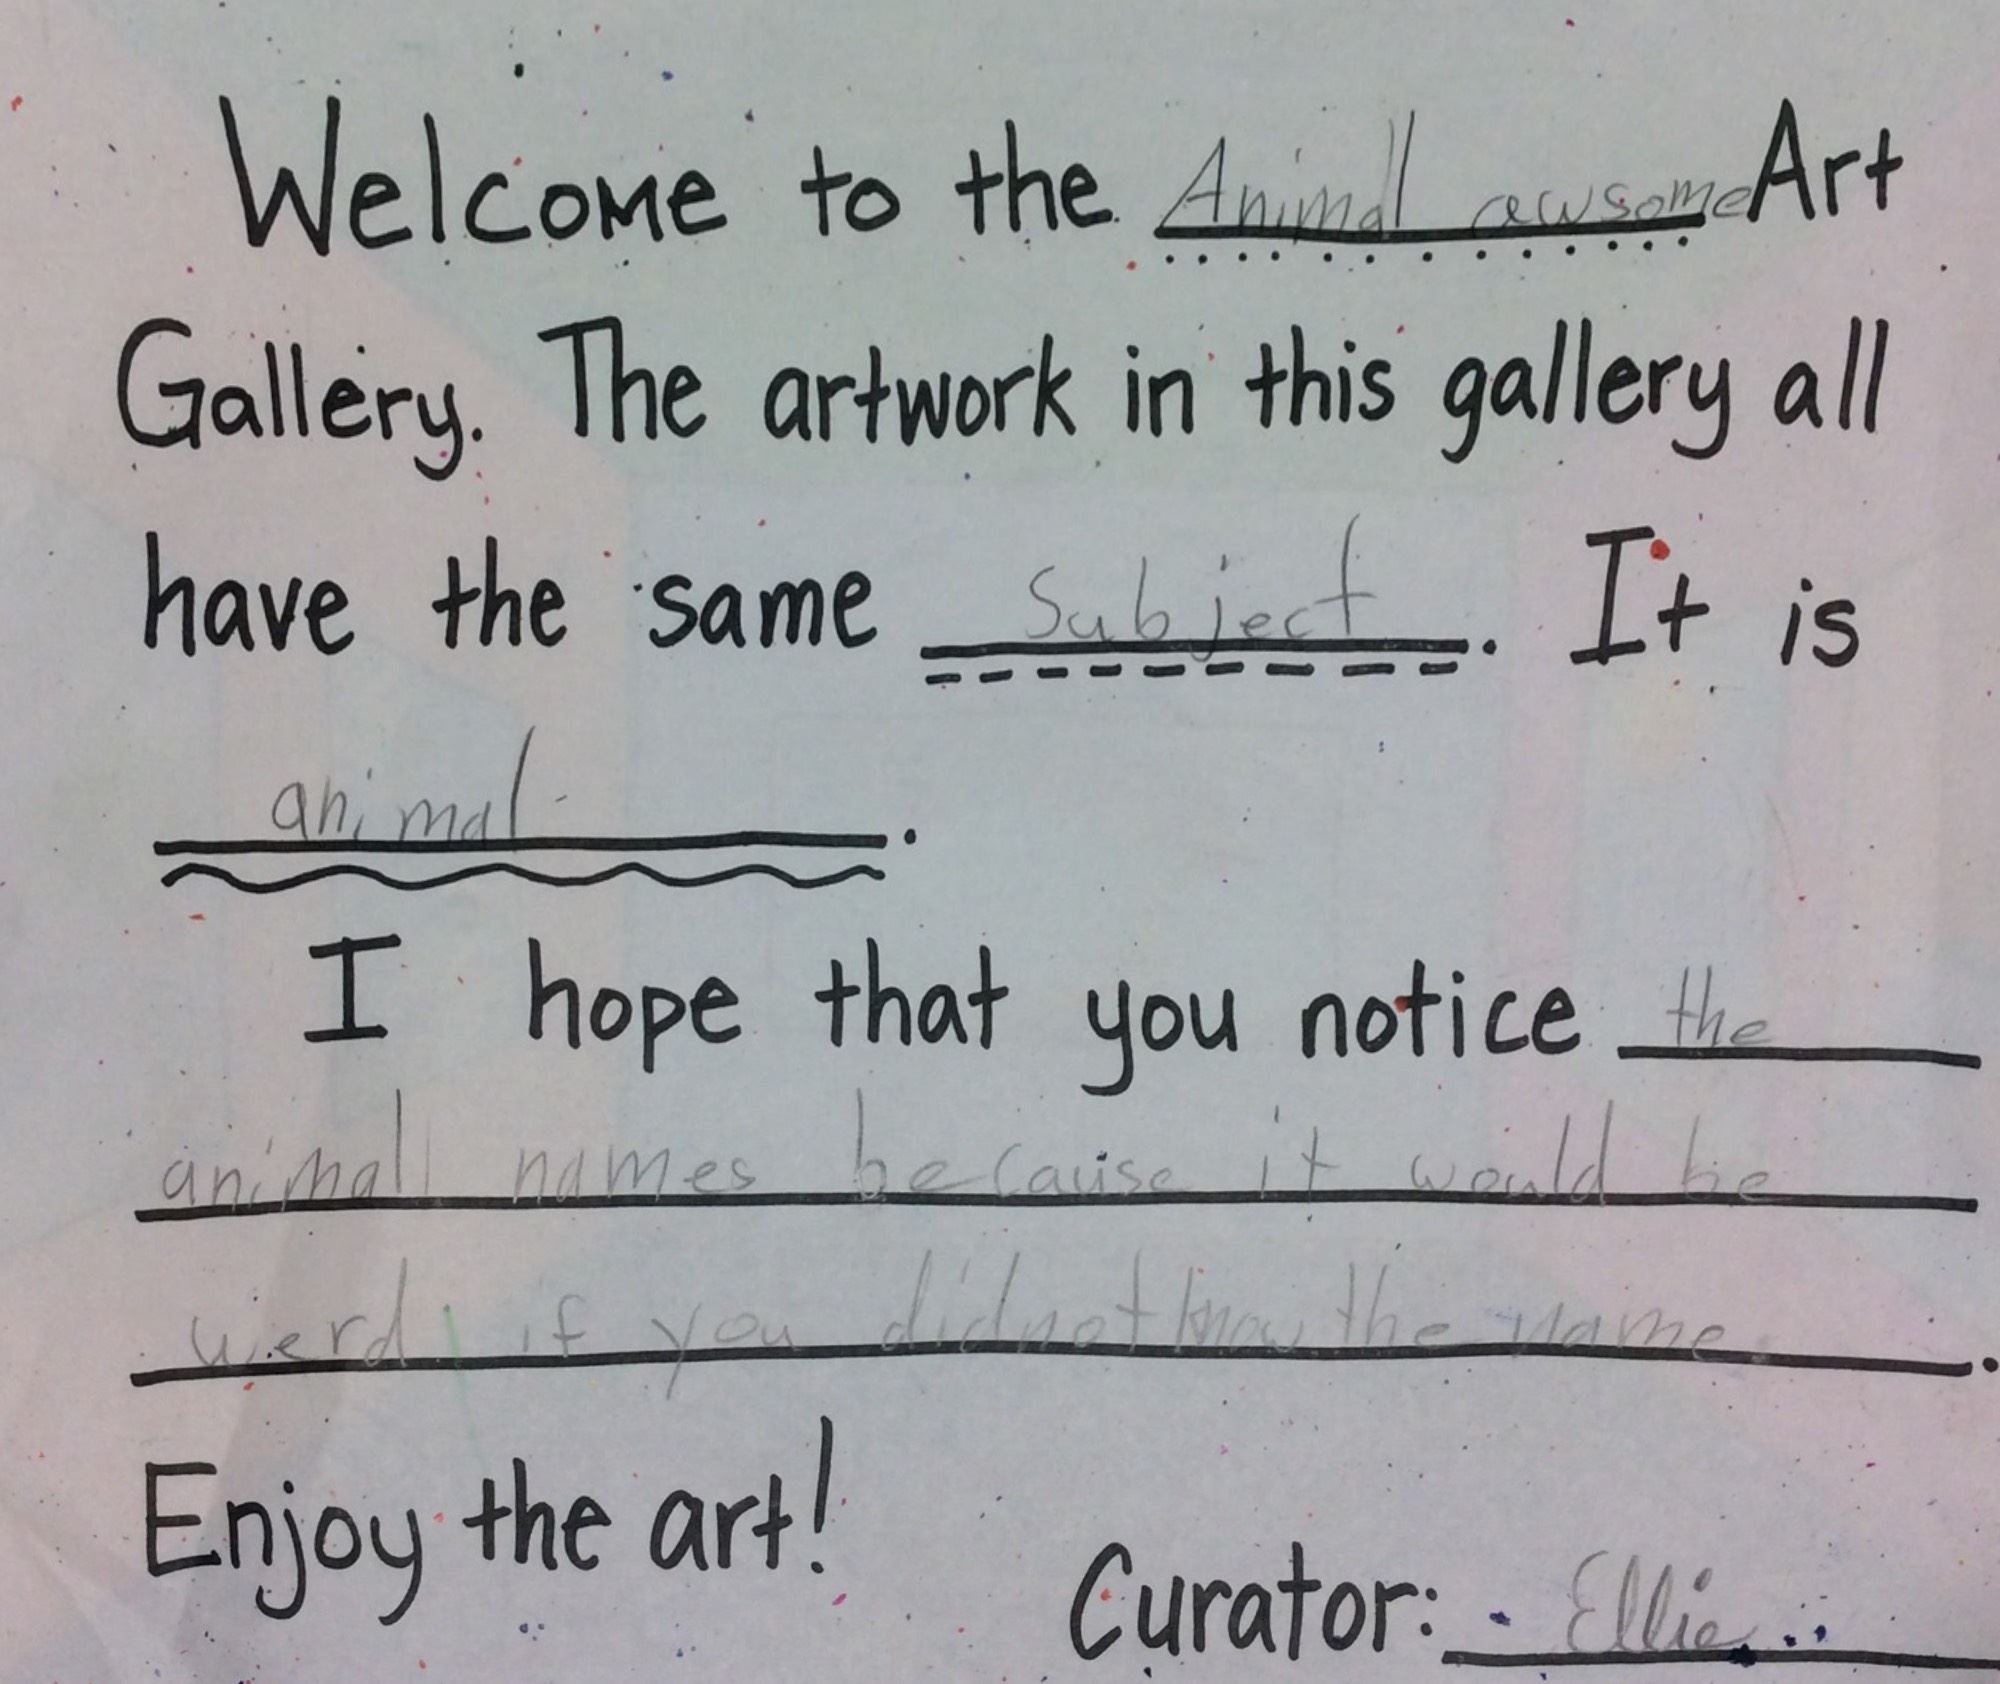 Welcome to the Animal awsome Art
Gallery. The artwork in this gallery all
have the same Subject. It is
animal.
I hope that you notice the
animal names because it would be
werd if you did not know the name.
Enjoy the art!
Curator: Ellie